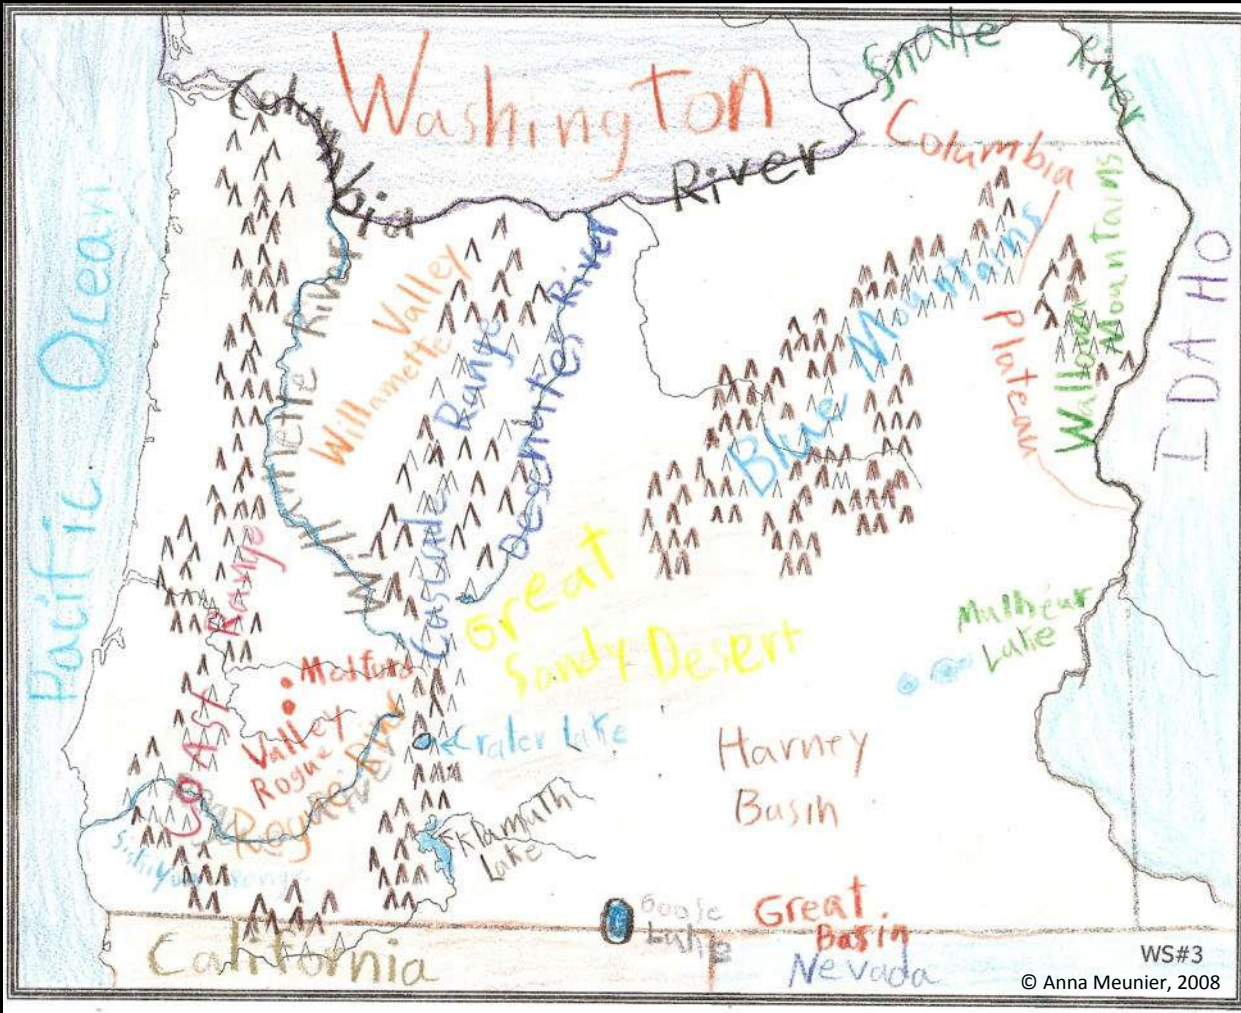 Washington
Snake
River
Columbia
River
Columbia
Plateau
Pacific Ocean
Willamette River
Willamette
Valley
Cascade Range
Deschutes River
Blue Mountains
Wallowa Mountains
IDAHO
Coast Range
Great
Sandy Desert
Malheur
Lake
Medford
Valley
Rogue
Rogue River
Crater Lake
Harney
Basin
Klamath
Lake
Siskiyou Range
Goose
Lake
Great
Basin
California
Nevada
WS#3
© Anna Meunier, 2008